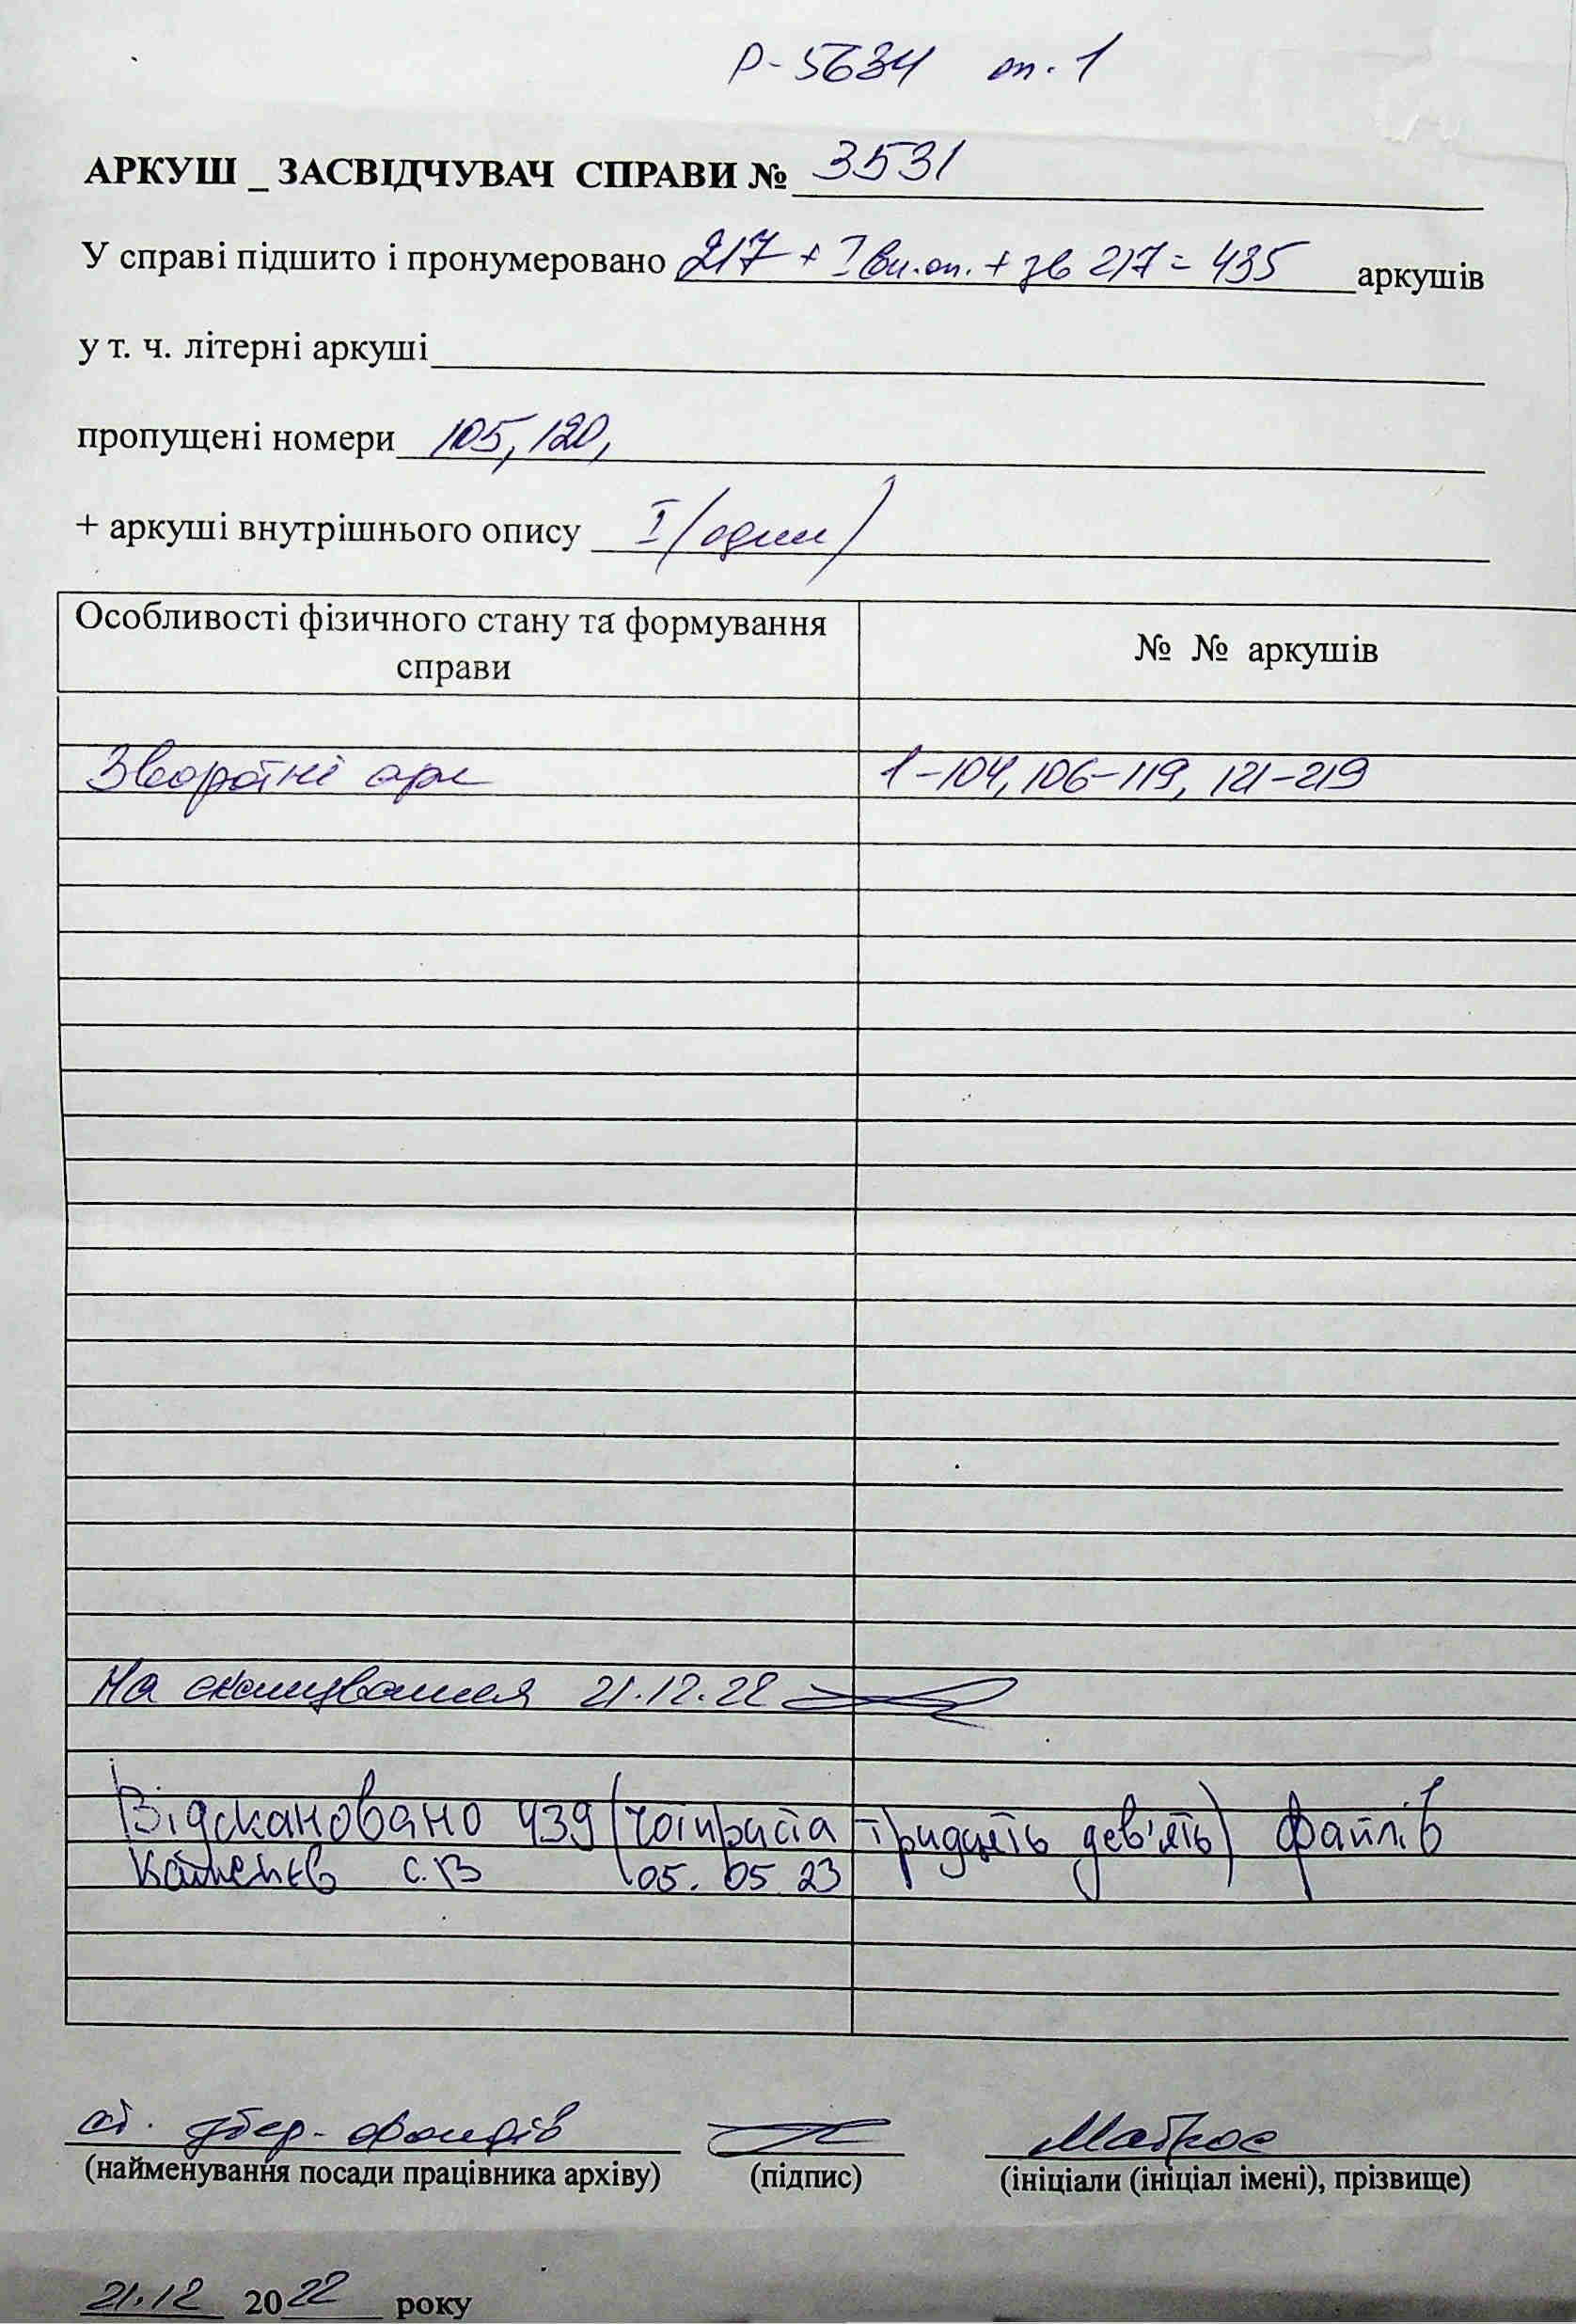 Р-5634 оп. 1
АРКУШ _ ЗАСВІДЧУВАЧ СПРАВИ № 3531
У справі підшито і пронумеровано 217 + I вн.оп. + зв 217 = 435 аркушів
у т. ч. літерні аркуші
пропущені номери 105, 120,
+ аркуші внутрішнього опису I (один)
Особливості фізичного стану та формування справи
№ № аркушів
Зворотні арк 1-104, 106-119, 121-219
На сканування 21.12.22
Відскановано 439 (чотириста тридцять дев'ять) файлів
С.В 05.05.23
ст. збер. фондів Матрос
(найменування посади працівника архіву) (підпис) (ініціали (ініціал імені), прізвище)
21.12 2022 року